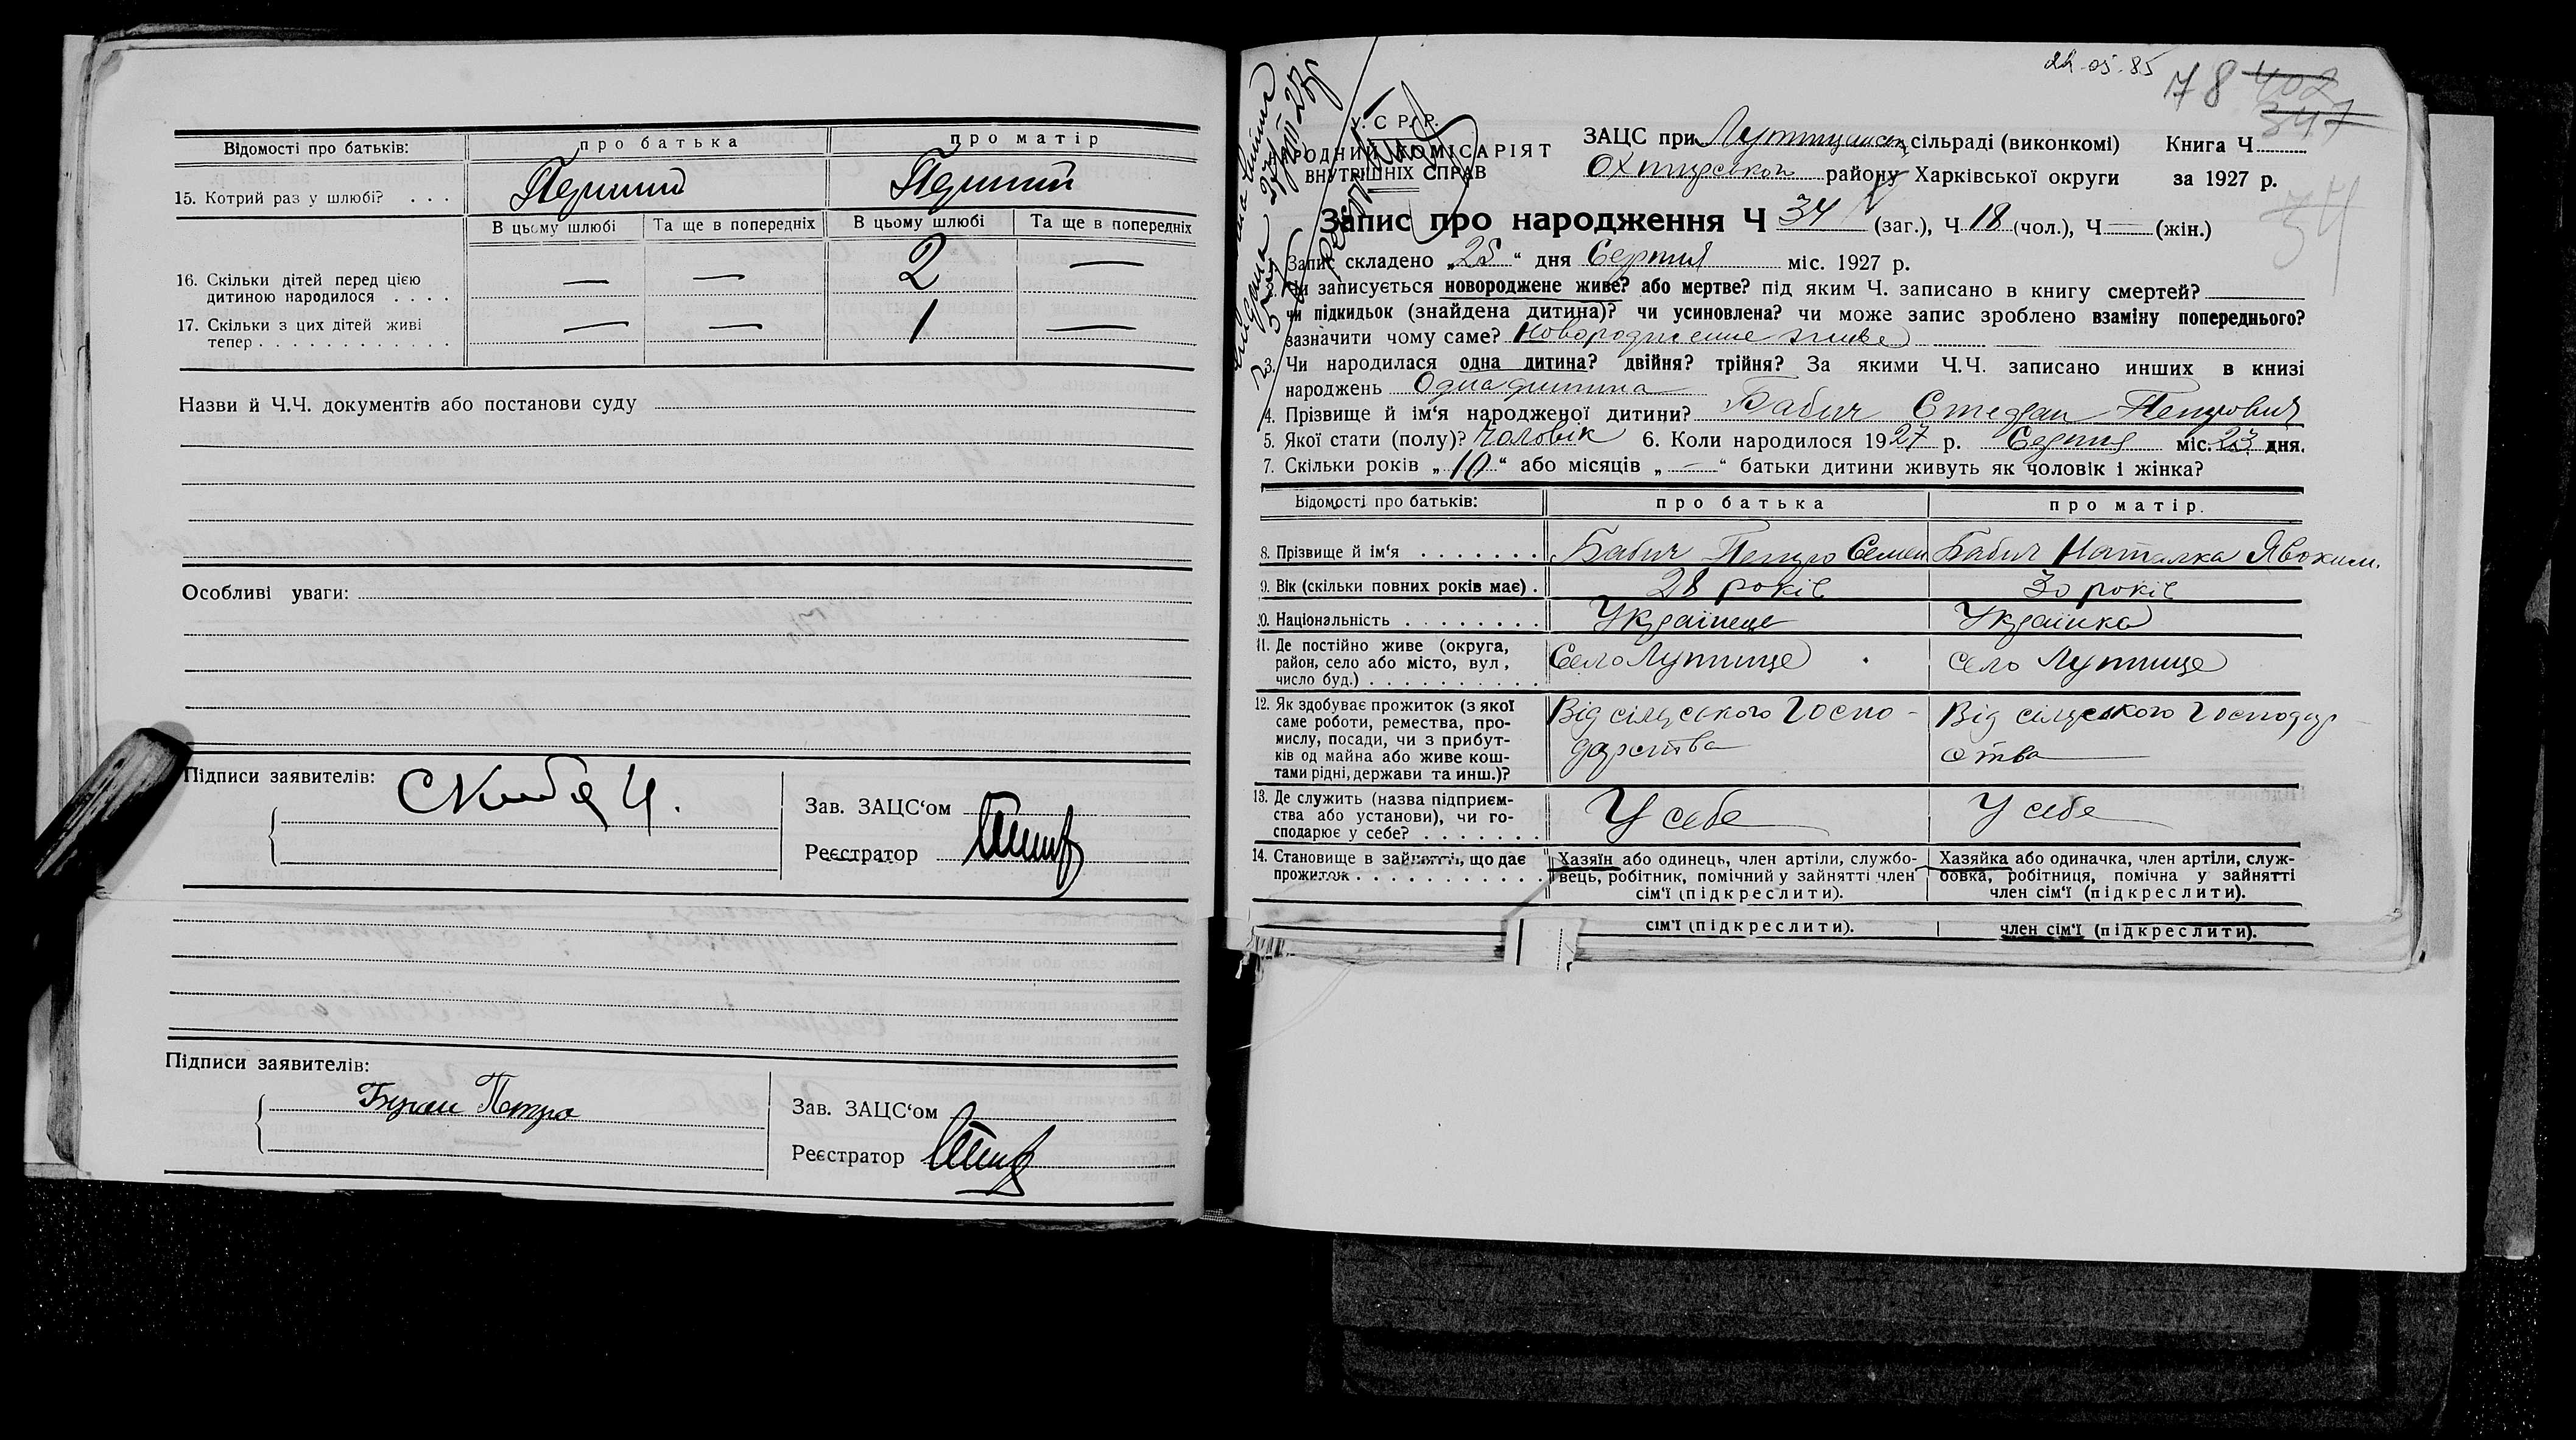 Відомості про батьків: про батька про матір
15. Котрий раз у шлюбі? . . . Перший Перший
В цьому шлюбі Та ще в попередніх В цьому шлюбі Та ще в попередніх
16. Скільки дітей перед цією
дитиною народилося . . . . — — 2 —
17. Скільки з цих дітей живі
тепер . . . . . . . . . . . . — — 1 —
Назви й Ч.Ч. документів або постанови суду
Особливі уваги:
Підписи заявителів:
Скиба
Зав. ЗАЦС‘ом
Реєстратор
Підписи заявителів:
Петро
Зав. ЗАЦС‘ом
Реєстратор
22-05-85
78 402
347
34
У. С. Р. Р.
РОДНИЙ КОМІСАРІЯТ
ВНУТРІШНІХ СПРАВ
ЗАЦС при сільраді (виконкомі) Книга Ч
Охтирського району Харківської округи за 1927 р.
Запис про народження Ч 34 (заг.), Ч 18 (чол.), Ч — (жін.)
Запис складено „25“ дня Серпня міс. 1927 р.
записується новороджене живе? або мертве? під яким Ч. записано в книгу смертей?
чи підкидьок (знайдена дитина)? чи усиновлена? чи може запис зроблено взаміну попереднього?
зазначити чому саме? Новороджене живе
3. Чи народилася одна дитина? двійня? трійня? За якими Ч.Ч. записано инших в книзі
народжень Одна дитина
4. Прізвище й ім‘я народженої дитини? Бабич Степан Петрович
5. Якої стати (полу)? Чоловік 6. Коли народилося 1927 р. Серпня міс. 23 дня.
7. Скільки років „10“ або місяців „—“ батьки дитини живуть як чоловік і жінка?
Відомості про батьків: про батька про матір.
8. Прізвище й ім‘я . . . . . . . Бабич Петро Семен Бабич Наталка Явоким.
9. Вік (скільки повних років має) . 28 років 30 років
10. Національність . . . . . . . . Українець Українка
11. Де постійно живе (округа,
район, село або місто, вул,
число буд.) . . . . . . . . . . Село Лутище село Лутище
12. Як здобуває прожиток (з якої
саме роботи, ремества, про-
мислу, посади, чи з прибут-
ків од майна або живе кош-
тами рідні, держави та инш.)?
Від сільського госпо-
дарства
Від сільського господар
ства
13. Де служить (назва підприєм-
ства або установи), чи го-
сподарює у себе? . . . . . . . У себе У себе
14. Становище в зайнятті, що дає
прожиток . . . . . . . . . . . .
Хазяїн або одинець, член артіли, службо-
вець, робітник, помічний у зайнятті член
сім‘ї (підкреслити).
Хазяйка або одиначка, член артіли, служ-
бовка, робітниця, помічна у зайнятті
член сім‘ї (підкреслити).
сім‘ї (підкреслити). член сім‘ї (підкреслити).